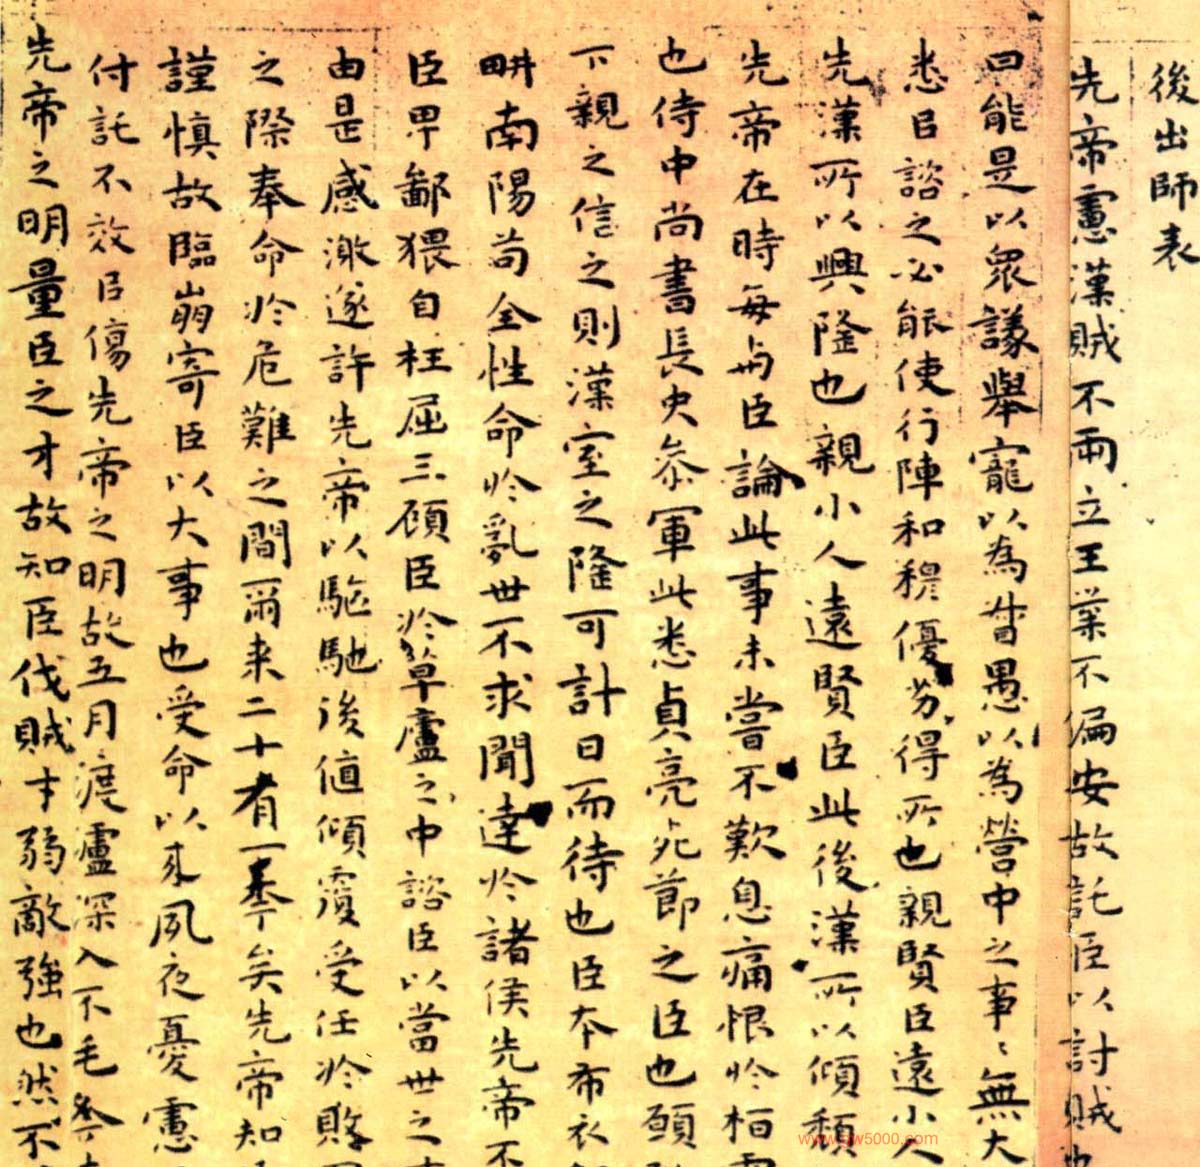 後出師表
先帝慮漢賊不兩立王業不偏安故託臣以討賊也
曰能是以眾議舉寵以為督愚以為營中之事〻無大
悉臣諮之必能使行陣和穆優劣得所也親賢臣遠小人
先漢所以興隆也親小人遠賢臣此後漢所以傾頹
先帝在時每与臣論此事未嘗不歎息痛恨於桓靈
也侍中尚書長史參軍此悉貞亮死節之臣也願
下親之信之則漢室之隆可計日而待也臣本布衣
畊南陽苟全性命於亂世不求聞達於諸侯先帝不
臣卑鄙猥自枉屈三顧臣於草廬之中諮臣以當世之
由是感激遂許先帝以驅馳後值傾覆受任於敗軍
之際奉命於危難之間爾来二十有一年矣先帝知
謹慎故臨崩寄臣以大事也受命以来夙夜憂慮
付託不效臣傷先帝之明故五月渡瀘深入不毛
先帝之明量臣之才故知臣伐賊才弱敵強也然不
www.5000.com